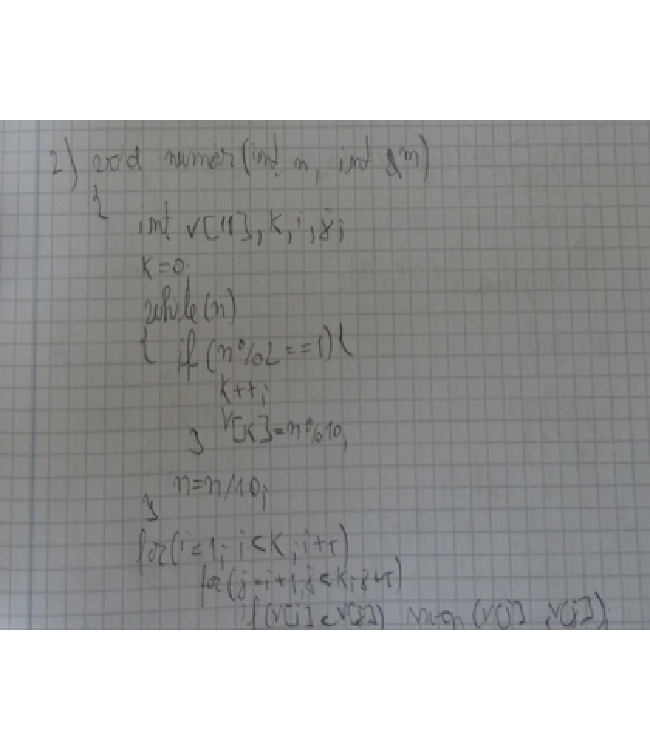 2) void numar(int n, int &m)
{
int v[11], k, i, j;
k=0
while(n)
{ if (n%2==1){
k++;
} v[k]=n%10;
} n=n/10;
for(i=1; i<k; i++)
for(j=i+1; j<=k; j++)
if(v[i]<v[j]) (v[i], v[j]);